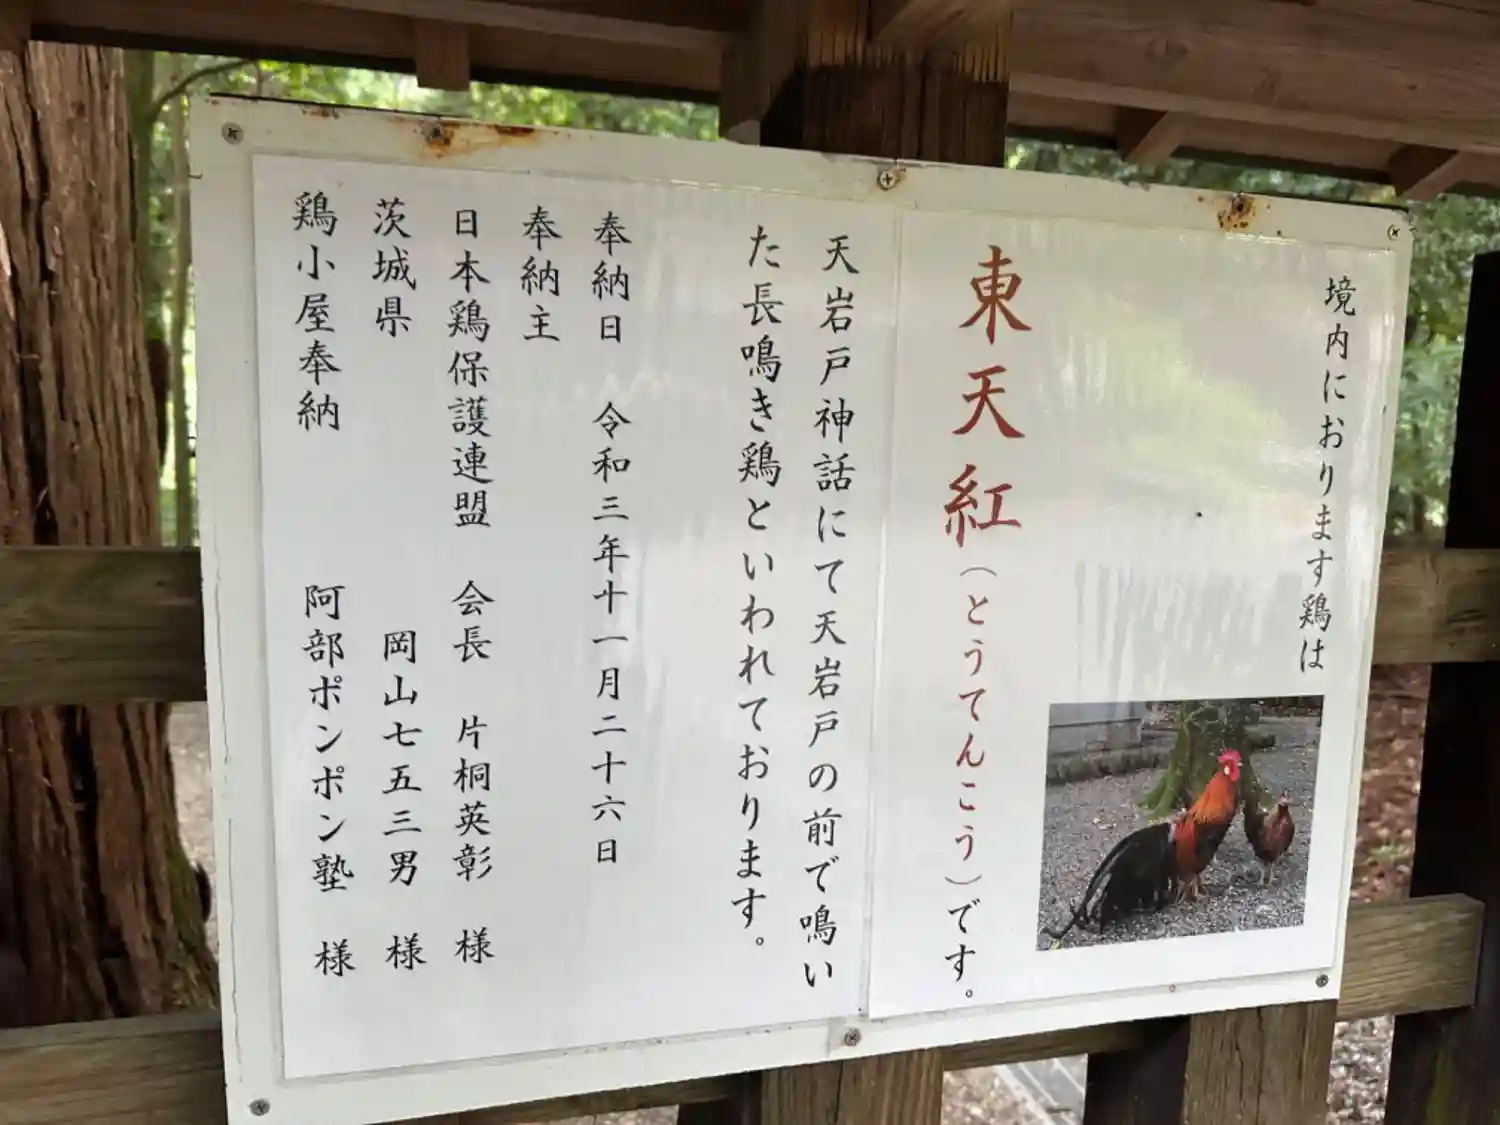 境内におります鶏は
東天紅(とうてんこう)です。
天岩戸神話にて天岩戸の前で鳴い
た長鳴き鶏といわれております。
奉納日 令和三年十一月二十六日
奉納主
日本鶏保護連盟 会長 片桐英彰 様
茨城県 岡山七五三男 様
鶏小屋奉納 阿部ポンポン塾 様